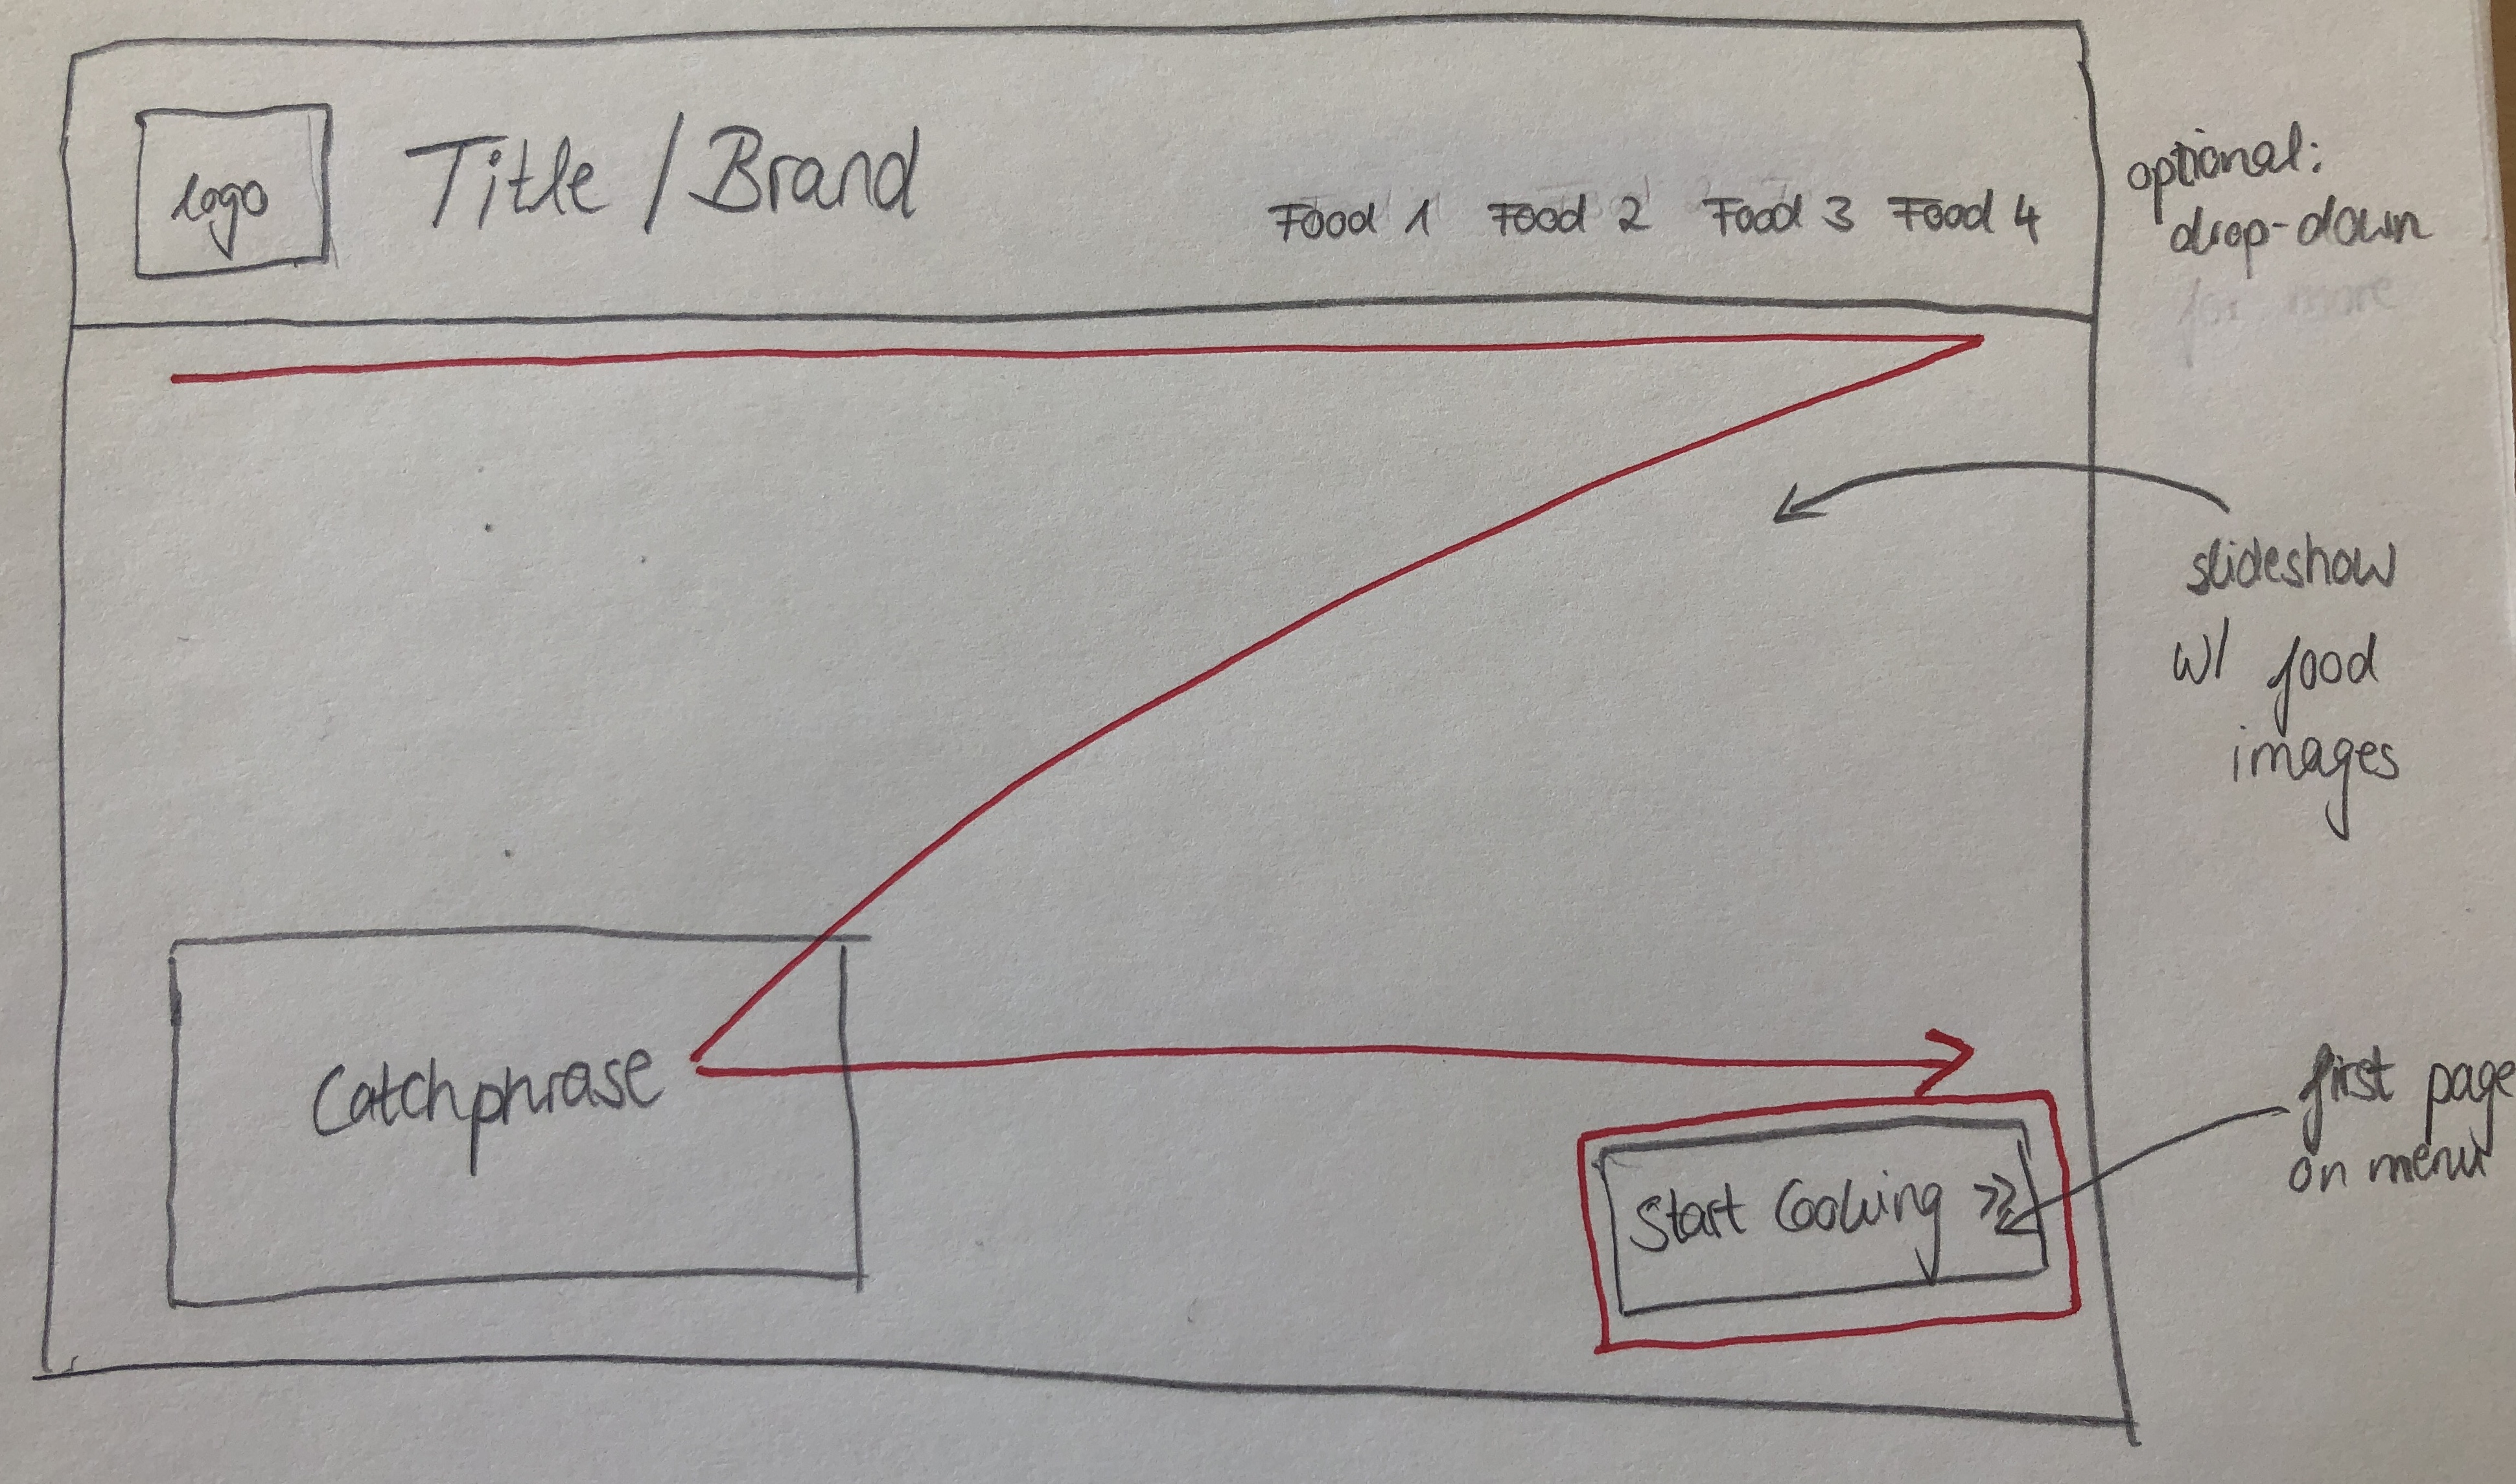 logo
Title / Brand
Food 1 Food 2 Food 3 Food 4
optional:
drop-down
for more
slideshow
w/ food
images
Catchphrase
Start Cooking >>
first page
on menu